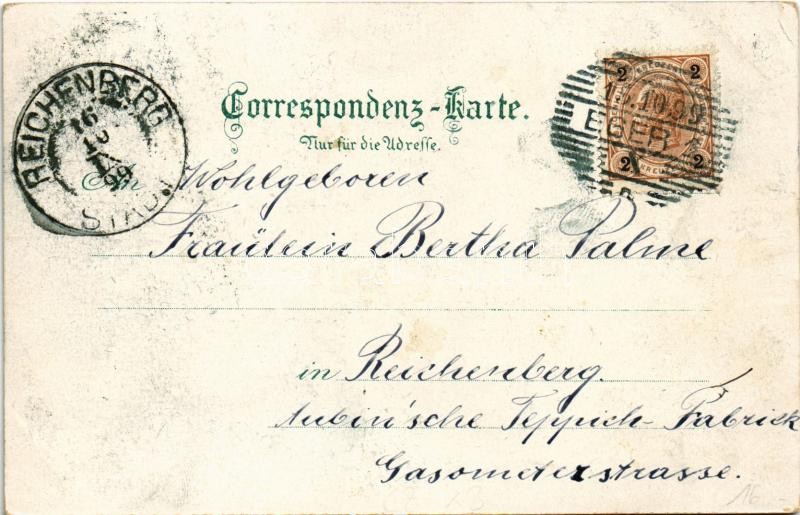 Correspondenz-Karte.
Nur für die Adresse.
REICHENBERG
16
10
99
STADT
2 2
15.10.99
EGER
2 2
An Wohlgeboren
Fräulein Bertha Palme
in Reichenberg.
Aubin'sche Teppich-Fabrick
Gasometerstrasse.
16